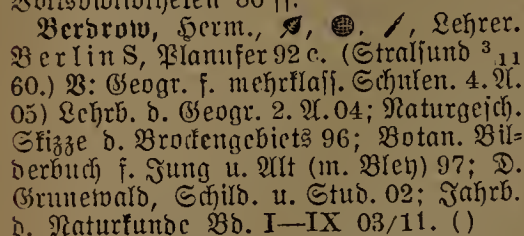 Volksbibliotheken 80 ff.
Berdrow, Herm., Lehrer.
Berlin S, Planufer 92 c. (Stralsund 3/11
60.) V: Geogr. f. mehrklass. Schulen. 4. A.
05) Lehrb. d. Geogr. 2. A. 04; Naturgesch.
Skizze d. Brockengebiets 96; Botan. Bil=
derbuch f. Jung u. Alt (m. Bley) 97; D.
Grunewald, Schild. u. Stud. 02; Jahrb.
d. Naturkunde Bd. I—IX 03/11. ()